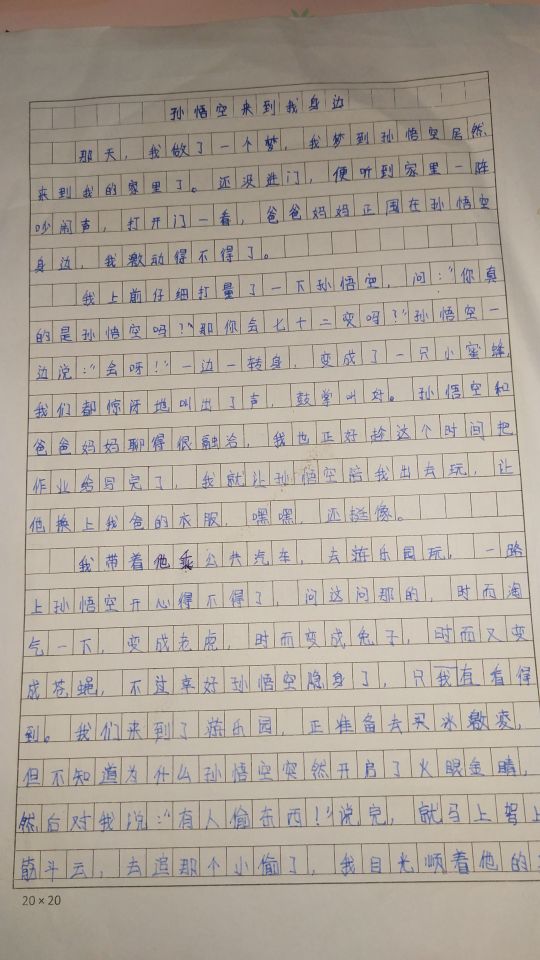 孙悟空来到我身边
那天，我做了一个梦，我梦到孙悟空居然
来到我的家里了。还没进门，便听到家里一阵
吵闹声，打开门一看，爸爸妈妈正围在孙悟空
身边，我激动得不得了。
我上前仔细打量了一下孙悟空，问："你真
的是孙悟空吗？"那你会七十二变吗？"孙悟空一
边说："会呀！"一边一转身，变成了一只小蜜蜂，
我们都惊讶地叫出了声，鼓掌叫好。孙悟空和
爸爸妈妈聊得很融洽，我也正好趁这个时间把
作业给写完了，我就让孙悟空陪我出去玩，让
他换上我爸的衣服，嘿嘿，还挺像。
我带着他乘公共汽车，去游乐园玩，一路
上孙悟空开心得不得了，问这问那的，时而淘
气一下，变成老虎，时而变成兔子，时而又变
成苍蝇，不过幸好孙悟空隐身了，只我有看得
到。我们来到了游乐园，正准备去买冰激凌，
但不知道为什么孙悟空突然开启了火眼金睛，
然后对我说："有人偷东西！"说完，就马上驾上
筋斗云，去追那个小偷了，我目光顺着他的
20×20